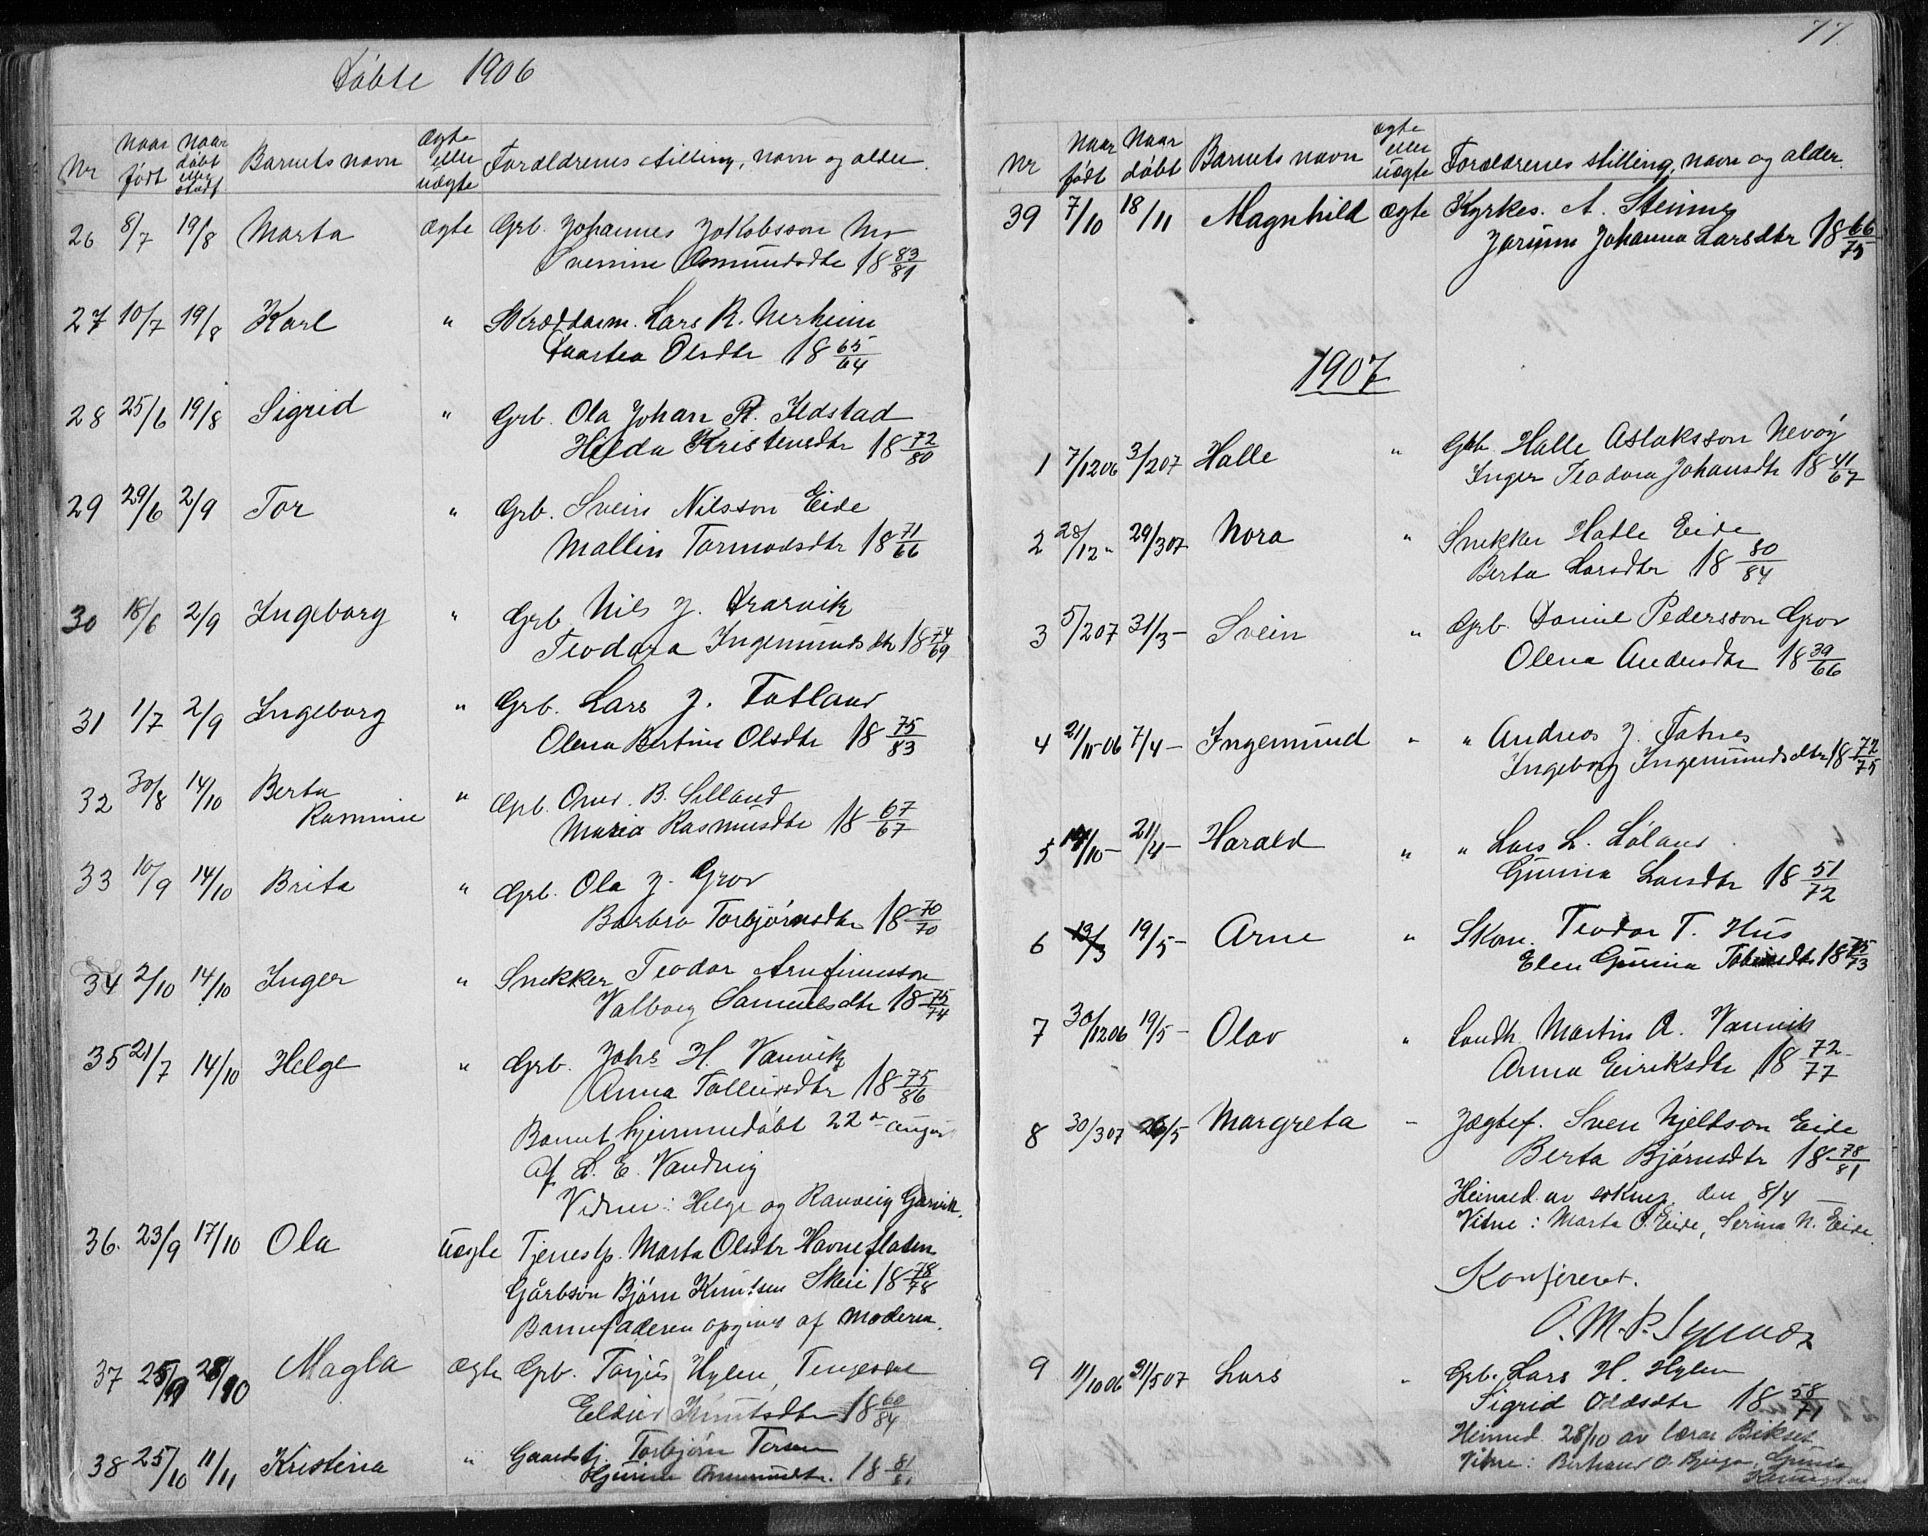 Døbte 1906
Nr | Naar født | Naar døbt eller stadf | Barnets navn | Ægte eller uægte | Forældrenes stilling, navn og alder.
26 8/7 19/8 Marta Ægte Grb. Johannes Jokobsson
Asmundsdtr 18 83/81
27 10/7 19/8 Karl " Skræddarm. Lars R. Nerheim
Olsdtr 18 65/64
28 25/6 19/8 Sigrid " Grb. Ola Johan R. Ildstad
Hilda Kristensdtr 18 72/80
29 29/6 2/9 Tor " Grb. Svein Nilsson Eide
Mallin Tormodsdtr 18 71/66
30 18/6 2/9 Ingeborg " Grb. Nils J.
Teodora Ingemundsdtr 18 74/69
31 1/7 2/9 Ingeborg " Grb. Lars J. Tatland
Olena Bertine Olsdtr 18 75/83
32 30/8 14/10 Berta " Grb. B. Silland
Rasmine Maria Rasmusdtr 18 67/67
33 10/9 14/10 Brita " Grb. Ola J. Grov
Barbro Torbjørnsdtr 18 70/70
34 2/10 14/10 Inger " Snekker Teodor Arnfinnsson
Valborg Samuelsdtr 18 75/74
35 21/7 14/10 Helge " Grb. Johs H. Vannvik
Anna Tolleivsdtr 18 75/86
Barnet hjemmedøbt 22de august
af L. E. Vandvig
Vidne: Helge og Ranveig
36. 23/9 17/10 Ola Uægte Tjenestp. Marta Olsdtr Havneflaten
Gårbson Bjørn Knutsen Skeie 18 78/78
Barnefaderen opgives af moderen.
37 25/9 28/10 Magla Ægte Grb. Torjus Hylen,
Knutsdtr 18 60/84
38 25/10 11/11 Kristina " Gaardbtj. Torbjørn
Asmundsdtr. 18 81/81
77.
Nr | Naar født | Naar døbt | Barnets navn | Ægte eller uægte | Forældrenes stilling, navn og alder.
39 7/10 18/11 Magnhild Ægte Kyrkes. A. Steinnes
Johanna Larsdtr 18 66/75
1907
1 7/12 06 3/2 07 Halle " Grb. Halle Aslaksson Nevøy
Inger Teodora Johansdtr 18 41/67
2 28/12 " 29/3 07 Nora " Snekker Halle Eide
Berta Larsdtr 18 80/84
3 5/2 07 31/3 - Svein " Grb. Daniel Pedersson Grov
Olena Andersdtr 18 39/66
4 21/11 06 7/4 - Ingemund " " Andreas J.
Ingeborg Ingemundsdtr 18 72/75
5 14/10 - 21/4 - Harald " " Lars L. Løland
Gunna Larsdtr 18 51/72
6 13/3 19/5 - Arne " Skom. Teodor T. Hus
Elen Gurina 18 75/73
7 30/12 06 19/5 - Olav " Landh. Martin A. Vannvik
Anna Eiriksdtr 18 72/77
8 30/3 07 26/5 Margreta - Jægtef. Sven Njeldson Eide
Berta Bjørnsdtr 18 78/81
Heimed. av soknep. den 8/4 —
Vitne: Marta O. Eide, Serina N. Eide.
Konfereret.
O. M. P.
9 11/10 06 21/5 07 Lars " Grb. Lars H. Hylen
Sigrid Oddsdtr 18 58/71
Heimed. 28/10 av lærar
Vitne: O.